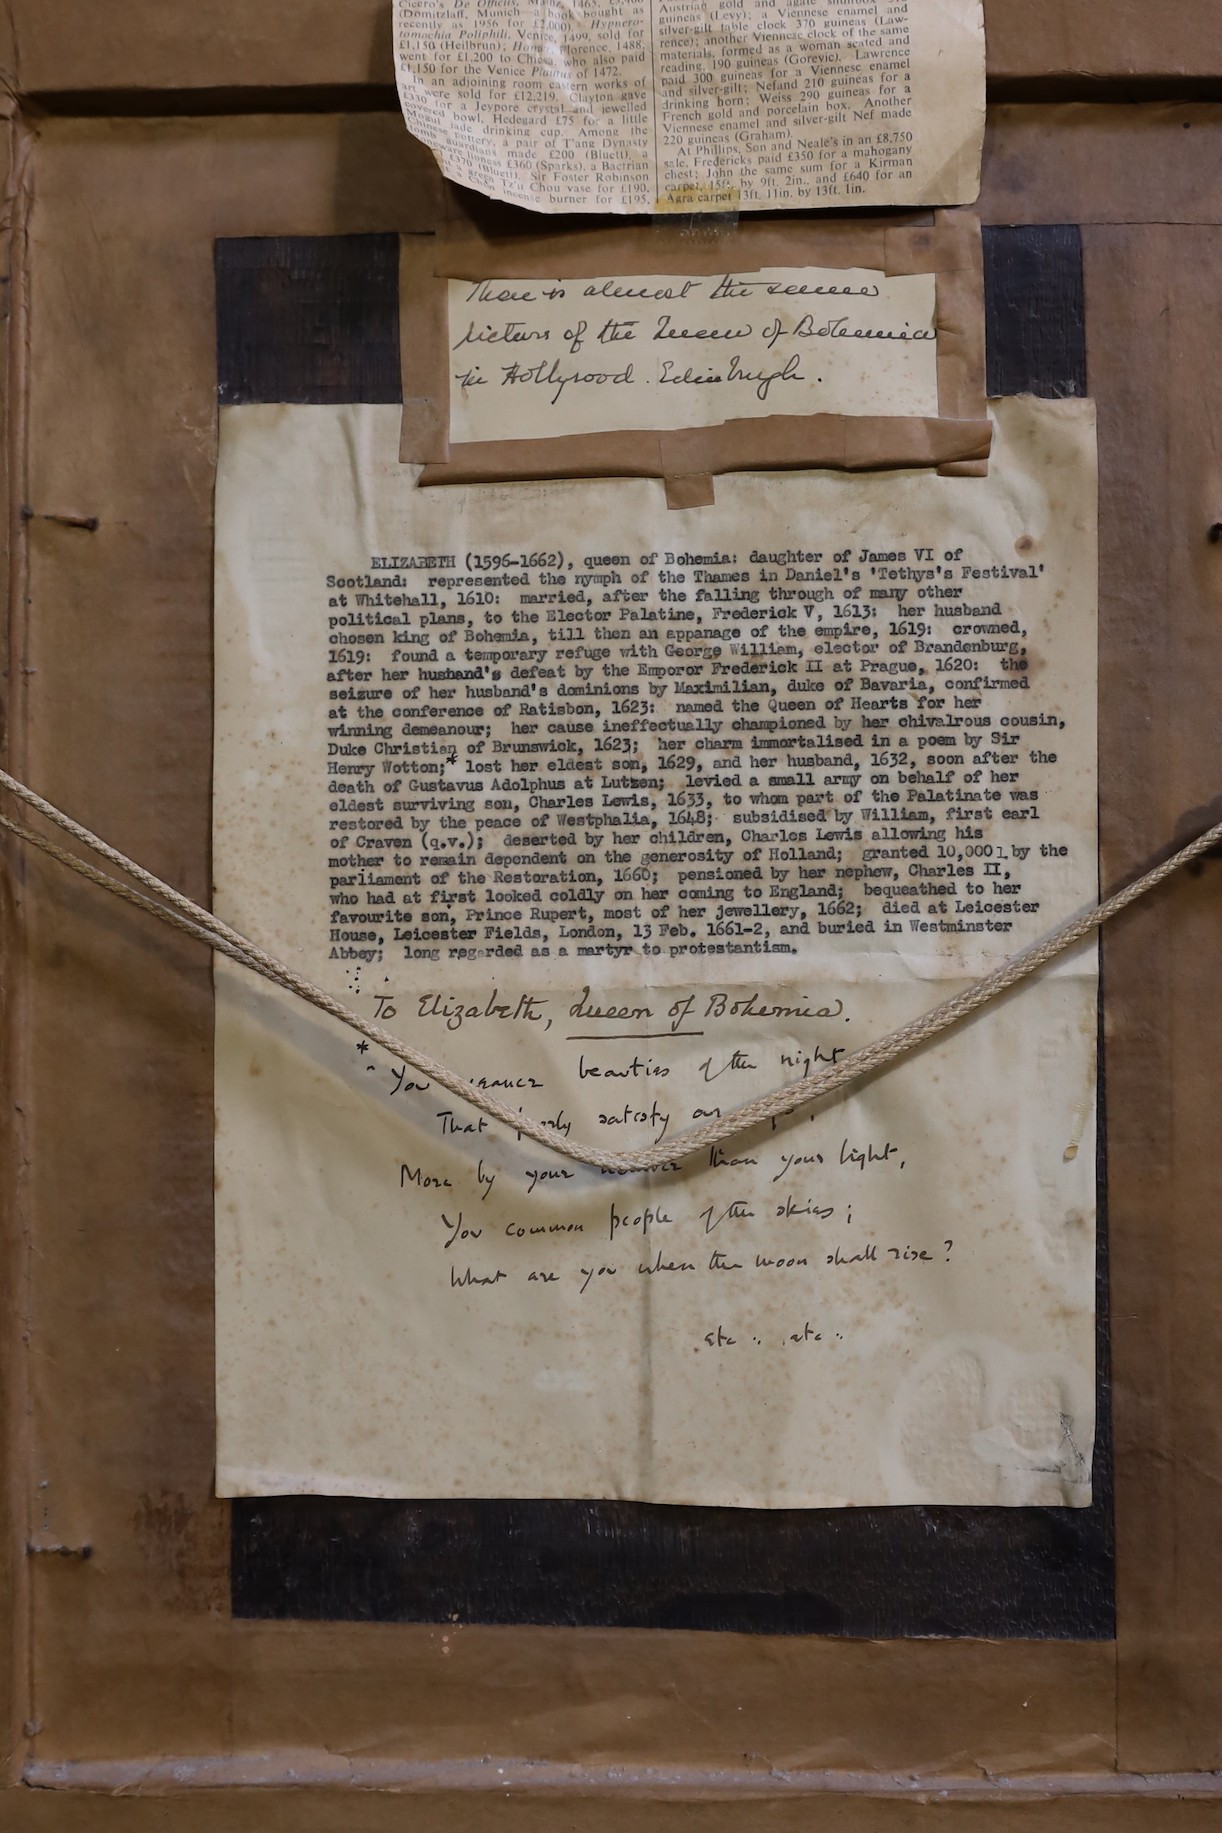 Cicero's De Officiis, Mainz, 1465, £3,400
(Domitzlaff, Munich—a book bought as
recently as 1956 for £2,000). Hypnero-
tomachia Poliphili, Venice, 1499, sold for
£1,150 (Heilbrun); Homer, Florence, 1488,
went for £1,200 to Chiesa, who also paid
£1,150 for the Venice Plautus of 1472.
In an adjoining room eastern works of
art were sold for £12,219. Clayton gave
£330 for a Jeypore crystal and jewelled
covered bowl, Hedegard £75 for a little
Mogul jade drinking cup. Among the
Chinese pottery, a pair of T'ang Dynasty
tomb guardians made £200 (Bluett), a
lioness £360 (Sparks), a Bactrian
£370 (Bluett). Sir Foster Robinson
Tz'u Chou vase for £190,
incense burner for £195.
Austrian gold and agate snuffbox
guineas (Levy); a Viennese enamel and
silver-gilt table clock 370 guineas (Law-
rence); another Viennese clock of the same
materials, formed as a woman seated and
reading, 190 guineas (Gorevic). Lawrence
paid 300 guineas for a Viennese enamel
and silver-gilt; Nefand 210 guineas for a
drinking horn; Weiss 290 guineas for a
French gold and porcelain box. Another
Viennese enamel and silver-gilt Nef made
220 guineas (Graham).
At Phillips, Son and Neale's in an £8,750
sale, Fredericks paid £350 for a mahogany
chest; John the same sum for a Kirman
carpet, 15ft. by 9ft. 2in., and £640 for an
Agra carpet 13ft. 11in. by 13ft. 1in.
There is almost the same
picture of the Queen of Bohemia
in Hollyrood. Edinburgh.
ELIZABETH (1596-1662), queen of Bohemia: daughter of James VI of
Scotland: represented the nymph of the Thames in Daniel's 'Tethys's Festival'
at Whitehall, 1610: married, after the falling through of many other
political plans, to the Elector Palatine, Frederick V, 1613: her husband
chosen king of Bohemia, till then an appanage of the empire, 1619: crowned,
1619: found a temporary refuge with George William, elector of Brandenburg,
after her husband's defeat by the Emporor Frederick II at Prague, 1620: the
seizure of her husband's dominions by Maximilian, duke of Bavaria, confirmed
at the conference of Ratisbon, 1623: named the Queen of Hearts for her
winning demeanour; her cause ineffectually championed by her chivalrous cousin,
Duke Christian of Brunswick, 1623; her charm immortalised in a poem by Sir
Henry Wotton;* lost her eldest son, 1629, and her husband, 1632, soon after the
death of Gustavus Adolphus at Lutzen; levied a small army on behalf of her
eldest surviving son, Charles Lewis, 1633, to whom part of the Palatinate was
restored by the peace of Westphalia, 1648; subsidised by William, first earl
of Craven (q.v.); deserted by her children, Charles Lewis allowing his
mother to remain dependent on the generosity of Holland; granted 10,000l by the
parliament of the Restoration, 1660; pensioned by her nephew, Charles II,
who had at first looked coldly on her coming to England; bequeathed to her
favourite son, Prince Rupert, most of her jewellery, 1662; died at Leicester
House, Leicester Fields, London, 13 Feb. 1661-2, and buried in Westminster
Abbey; long regarded as a martyr to protestantism.
To Elizabeth, Queen of Bohemia.
* "You beauties of the night
That satisfy our
More by your number than your light,
You common people of the skies;
What are you when the moon shall rise?
etc .. etc ..